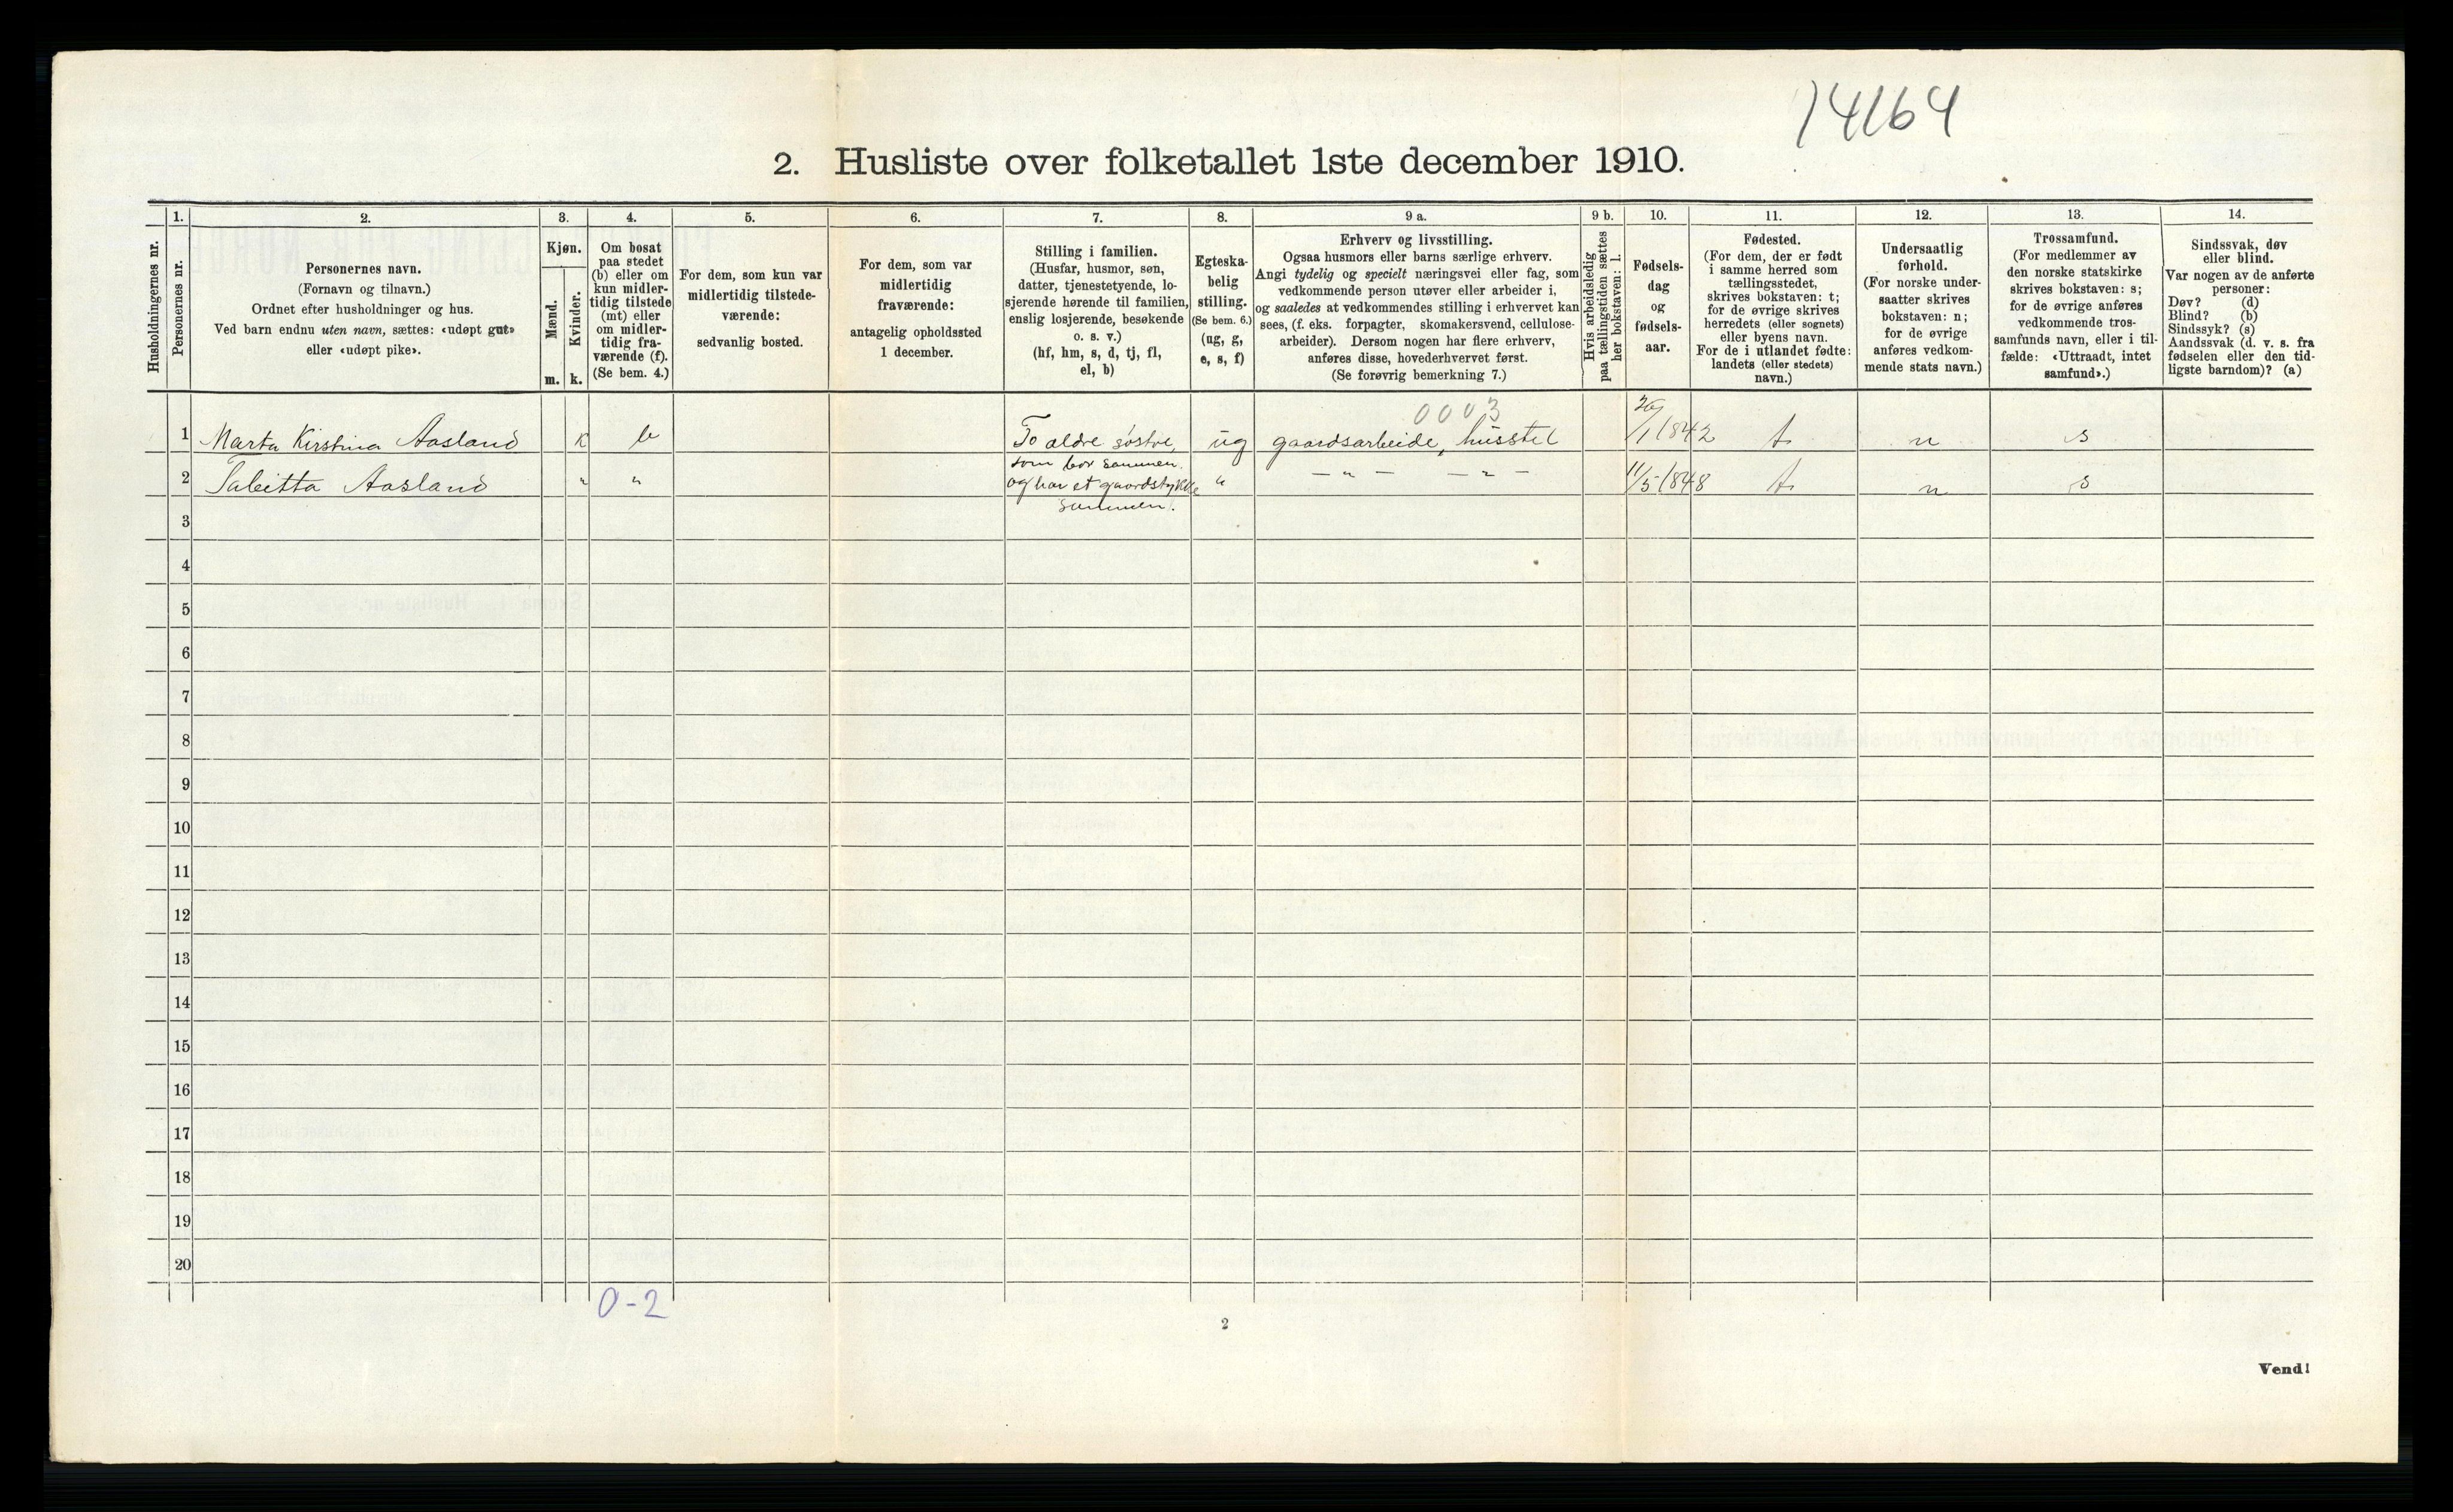 14164
2. Husliste over folketallet 1ste december 1910.
Husholdningernes nr.
1.
Personernes nr.
2.
Personernes navn.
(Fornavn og tilnavn.)
Ordnet efter husholdninger og hus.
Ved barn endnu uten navn, sættes: «udøpt gut»
eller «udøpt pike».
3.
Kjøn.
Mænd.
Kvinder.
m. k.
4.
Om bosat
paa stedet
(b) eller om
kun midler-
tidig tilstede
(mt) eller
om midler-
tidig fra-
værende (f).
(Se bem. 4.)
5.
For dem, som kun var
midlertidig tilstede-
værende:
sedvanlig bosted.
6.
For dem, som var
midlertidig
fraværende:
antagelig opholdssted
1 december.
7.
Stilling i familien.
(Husfar, husmor, søn,
datter, tjenestetyende, lo-
sjerende hørende til familien,
enslig losjerende, besøkende
o. s. v.)
(hf, hm, s, d, tj, fl,
el, b)
8.
Egteska-
belig
stilling.
(Se bem. 6.)
(ug, g,
e, s, f)
9 a.
Erhverv og livsstilling.
Ogsaa husmors eller barns særlige erhverv.
Angi tydelig og specielt næringsvei eller fag, som
vedkommende person utøver eller arbeider i,
og saaledes at vedkommendes stilling i erhvervet kan
sees, (f. eks. forpagter, skomakersvend, cellulose-
arbeider). Dersom nogen har flere erhverv,
anføres disse, hovederhvervet først.
(Se forøvrig bemerkning 7.)
9 b.
Hvis arbeidsledig
paa tællingstiden sættes
her bokstaven: l.
10.
Fødsels-
dag
og
fødsels-
aar.
11.
Fødested.
(For dem, der er født
i samme herred som
tællingsstedet,
skrives bokstaven: t;
for de øvrige skrives
herredets (eller sognets)
eller byens navn.
For de i utlandet fødte:
landets (eller stedets)
navn.)
12.
Undersaatlig
forhold.
(For norske under-
saatter skrives
bokstaven: n;
for de øvrige
anføres vedkom-
mende stats navn.)
13.
Trossamfund.
(For medlemmer av
den norske statskirke
skrives bokstaven: s;
for de øvrige anføres
vedkommende tros-
samfunds navn, eller i til-
fælde: «Uttraadt, intet
samfund».)
14.
Sindssvak, døv
eller blind.
Var nogen av de anførte
personer:
Døv? (d)
Blind? (b)
Sindssyk? (s)
Aandssvak (d. v. s. fra
fødselen eller den tid-
ligste barndom)? (a)
0003
1 Marta Kirstina Aasland K b To ældre søstre, ug gaardsarbeide, husstel /1 1842 t n s
som bor sammen.
2 Tabitta Aasland " " og har et gaardstykke " — " — — " — 11/5 1848 t n s
sammen.
3
4
5
6
7
8
9
10
11
12
13
14
15
16
17
18
19
20
0-2
2
Vend!